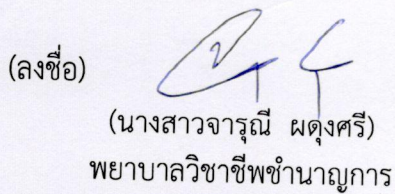 (ลงชื่อ)
(นางสาวจารุณี ผดุงศรี)
พยาบาลวิชาชีพชำนาญการ